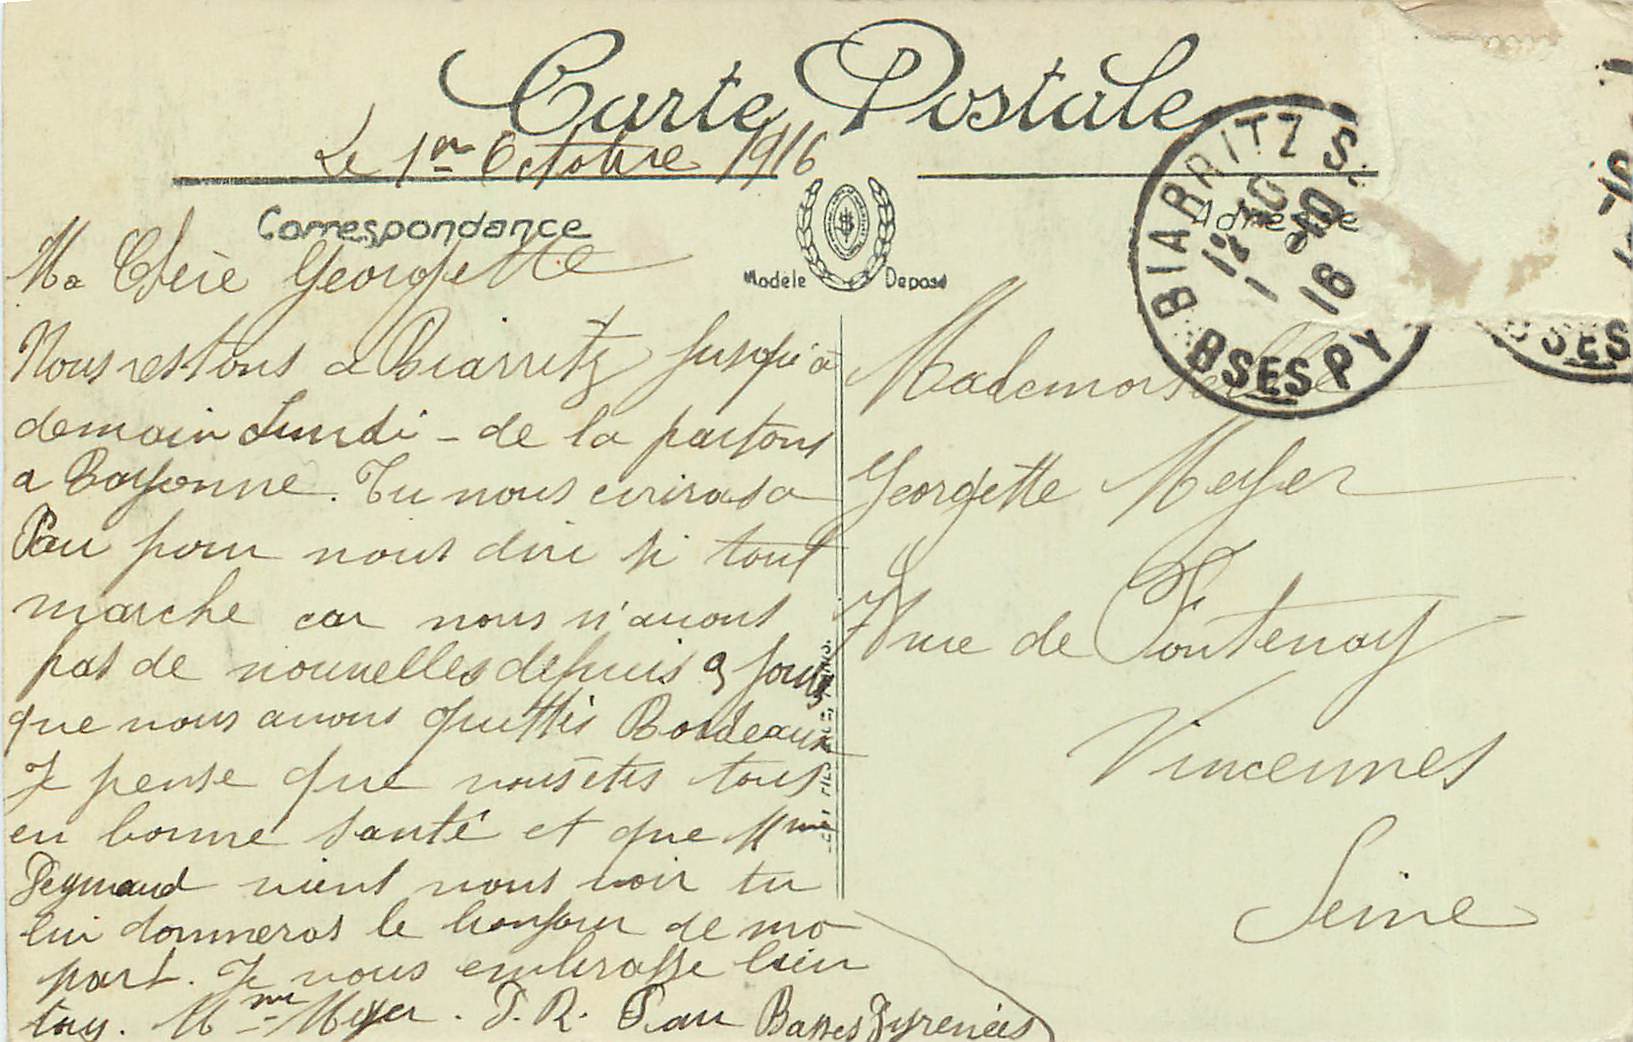 Carte Postale
Le 1er Octobre 1916
Correspondance
Adresse
Modèle Déposé
BIARRITZ
BSES PY
12 10
1 10
16
BSES
Ma Chère Georgette
Nous restons a Biarritz jusqu'a
demain Lundi – de la partons
a Bayonne. Tu nous eciriras a
Pau pour nous dire si tout
marche car nous n'avons
pas de nouvelles depuis 9 jours
que nous avons quittés Bordeaux
Je pense que vous êtes tous
en bonne santé et que Mme
Peymaud vient vous voir tu
lui donneras le bonjour de ma
part. Je vous embrasse bien
tous. Mme Meyer. P.R. Pau Basses Pyrenées
Mademoiselle
Georgette Meyer
rue de Fontenay
Vincennes
Seine